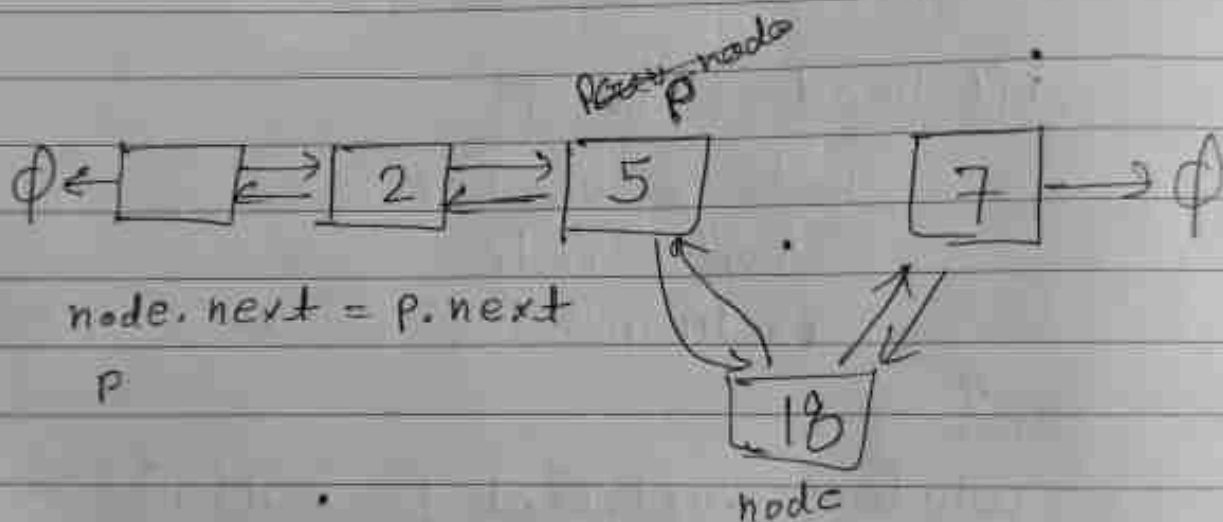 node
p
ϕ 2 5 7 ϕ
node.next = p.next
p
18
node